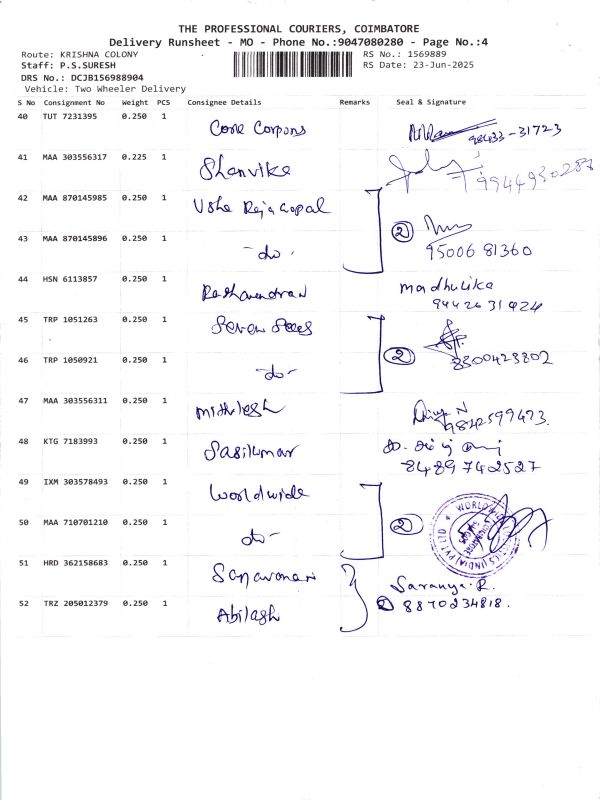 THE PROFESSIONAL COURIERS, COIMBATORE
Delivery Runsheet - MO - Phone No.:9047080280 - Page No.:4
Route: KRISHNA COLONY RS No.: 1569889
Staff: P.S.SURESH RS Date: 23-Jun-2025
DRS No.: DCJB156988904
Vehicle: Two Wheeler Delivery
S No Consignment No Weight PCS Consignee Details Remarks Seal & Signature
40 TUT 7231395 0.250 1 Core Corpons 98433-31723
41 MAA 303556317 0.225 1 Shanvika
42 MAA 870145985 0.250 1 Usha Rajagopal
43 MAA 870145896 0.250 1 -do- 2 95006 81360
44 HSN 6113857 0.250 1 Madhulika
94426 31424
45 TRP 1051263 0.250 1 Seven Seas
46 TRP 1050921 0.250 1 -do- 2 8300423802
47 MAA 303556311 0.250 1 Mithilesh
9842599423.
48 KTG 7183993 0.250 1 Sasikumar
8489742527
49 IXM 303578493 0.250 1 Worldwide
50 MAA 710701210 0.250 1 do- 2
51 HRD 362158683 0.250 1 Saranya.R.
52 TRZ 205012379 0.250 1 Abilash 2 8870234818.